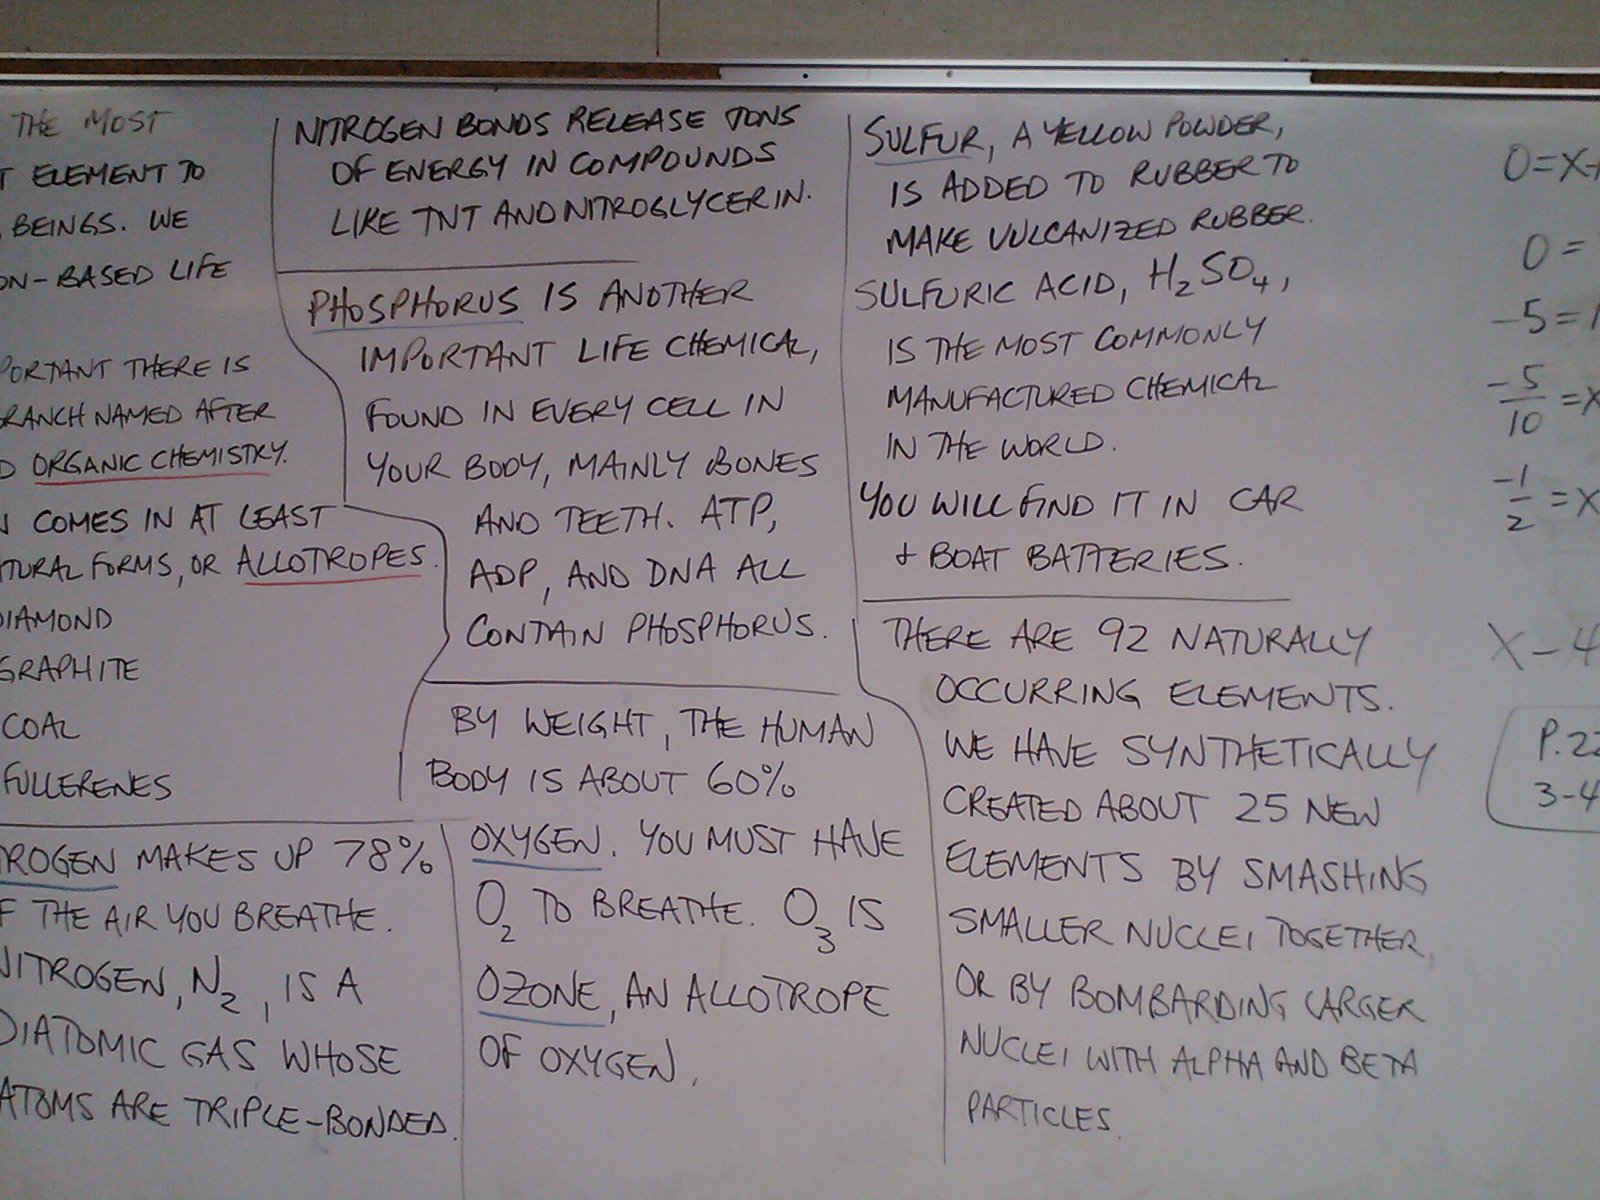 THE MOST
T ELEMENT TO
BEINGS. WE
ON-BASED LIFE
PORTANT THERE IS
BRANCH NAMED AFTER
D ORGANIC CHEMISTRY.
N COMES IN AT LEAST
TURAL FORMS, OR ALLOTROPES.
DIAMOND
GRAPHITE
COAL
FULLERENES
TROGEN MAKES UP 78%
F THE AIR YOU BREATHE.
NITROGEN, N₂, IS A
DIATOMIC GAS WHOSE
ATOMS ARE TRIPLE-BONDED.
NITROGEN BONDS RELEASE TONS
OF ENERGY IN COMPOUNDS
LIKE TNT AND NITROGLYCERIN.
PHOSPHORUS IS ANOTHER
IMPORTANT LIFE CHEMICAL,
FOUND IN EVERY CELL IN
YOUR BODY, MAINLY BONES
AND TEETH. ATP,
ADP, AND DNA ALL
CONTAIN PHOSPHORUS.
BY WEIGHT, THE HUMAN
BODY IS ABOUT 60%
OXYGEN. YOU MUST HAVE
O₂ TO BREATHE. O₃ IS
OZONE, AN ALLOTROPE
OF OXYGEN.
SULFUR, A YELLOW POWDER,
IS ADDED TO RUBBER TO
MAKE VULCANIZED RUBBER.
SULFURIC ACID, H₂SO₄,
IS THE MOST COMMONLY
MANUFACTURED CHEMICAL
IN THE WORLD.
YOU WILL FIND IT IN CAR
+ BOAT BATTERIES.
THERE ARE 92 NATURALLY
OCCURRING ELEMENTS.
WE HAVE SYNTHETICALLY
CREATED ABOUT 25 NEW
ELEMENTS BY SMASHING
SMALLER NUCLEI TOGETHER,
OR BY BOMBARDING LARGER
NUCLEI WITH ALPHA AND BETA
PARTICLES.
0=X+
0=
-5=1
-5/10=X
-1/2=X
X-4
P.22
3-4